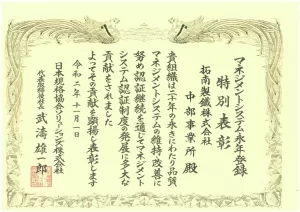 マネジメントシステム永年登録
特別表彰
拓南製鐵株式会社
中部事業所 殿
貴組織は二十年の永きにわたり品質
マネジメントシステムの維持・改善に
努め認証継続を通じてマネジメント
システム認証制度の発展に多大な
貢献をされました
よってその貢献を顕揚し表彰します
令和二年十二月一日
日本規格協会ソリューションズ株式会社
代表取締役社長 武濤雄一郎